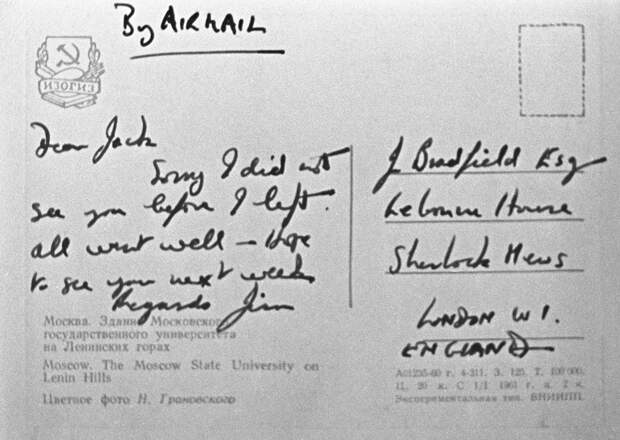 By AIRMAIL
ИЗОГИЗ
Dear Jack
Sorry I did not
see you before I left.
all went well – Hope
to see you next week
Regards Jim
Москва. Здание Московского
государственного университета
на Ленинских горах
Moscow. The Moscow State University on
Lenin Hills
Цветное фото Н. Грановского
J Bradfield Esq
Lebonum House
Sherlock Mews
LONDON W1.
ENGLAND
А01235-60 г. 4-311. З. 125. Т. 100 000.
11. 20 к. С 1/I 1961 г. ц. 2 к.
Экспериментальная тип. ВНИИПП.